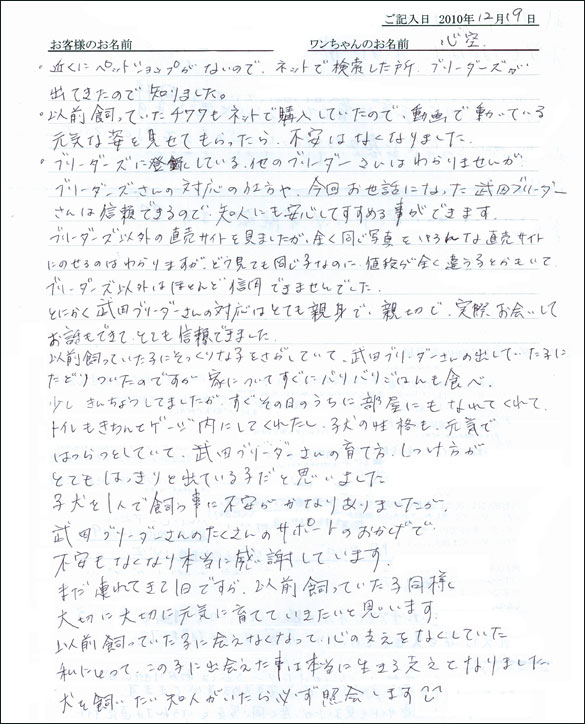 ご記入日 2010年12月19日
お客様のお名前 ワンちゃんのお名前 心空.
・近くにペットショップがないので、ネットで検索した所、ブリーダーズが
出てきたので知りました。
・以前飼っていたチワワもネットで購入していたので、動画で動いている
元気な姿を見せてもらったら、不安はなくなりました.
・ブリーダーズに登録している、他のブリーダーさんはわかりませんが
ブリーダーズさんの対応の仕方や、今回お世話になった武田ブリーダー
さんは信頼できるので、知人にも安心してすすめる事ができます.
ブリーダーズ以外の直売サイトを見ましたが、全く同じ写真をいろんな直売サイト
にのせるのはわかりますが、どう見ても同じ子なのに、値段が全く違う子とかもいて.
ブリーダーズ以外はほとんど信用できませんでした.
とにかく武田ブリーダーさんの対応はとても親身で、親切で、実際お会いして
お話もできて、とても信頼できました.
以前飼っていた子にそっくりな子をさがしていて、武田ブリーダーさんの出していた子に
たどりついたのですが 家についてすぐにバリバリごはんも食べ、
少しきんちょうしてましたが、すぐその日のうちに部屋にもなれてくれて、
トイレもきちんとゲージ内にしてくれたし、子犬の性格も、元気で
はつらつとしていて、武田ブリーダーさんの育て方、しつけ方が
とてもはっきりと出ている子だと思いました
子犬を1人で飼う事に不安がかなりありましたが、
武田ブリーダーさんのたくさんのサポートのおかげで
不安もなくなり本当に感謝しています.
まだ連れてきて1日ですが、以前飼っていた子同様に
大切に大切に元気に育てていきたいと思います
以前飼っていた子に会えなくなって、心の支えをなくしていた
私にとって、この子に出会えた事は本当に生きる支えとなりました
犬を飼いたい知人がいたら必ず照会します